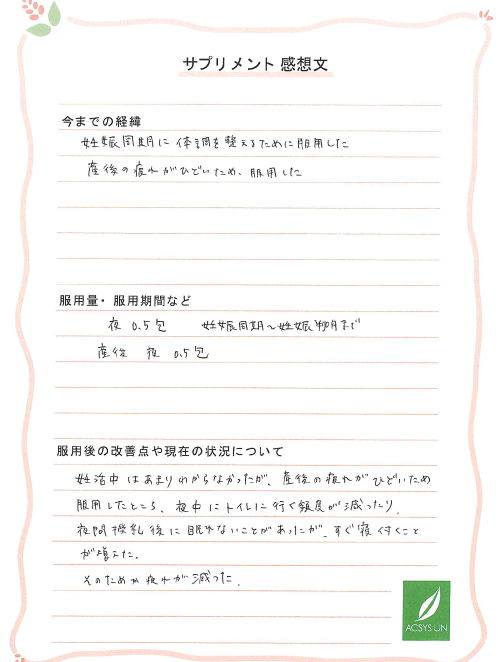 サプリメント 感想文
今までの経緯
妊娠周期に体調を整えるために服用した
産後の疲れがひどいため、服用した
服用量・服用期間など
夜 0.5包 妊娠周期〜妊娠初月まで
産後 夜 0.5包
服用後の改善点や現在の状況について
妊活中はあまりわからなかったが、産後の疲れがひどいため
服用したところ、夜中にトイレに行く頻度が減ったり、
夜間授乳後に眠れないことがあったが、すぐ寝付くこと
が増えた。
そのためか疲れが減った。
ACSYSUN